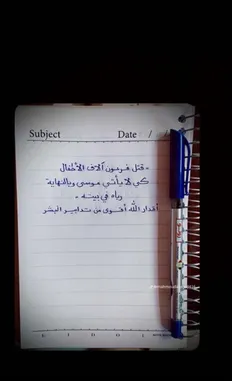 Subject Date / /
- قتل فرعون آلاف الأطفال
كي لا يأتي موسى وبالنهاية
رباه في بيته
أقدار الله أقوى من تدابير البشر